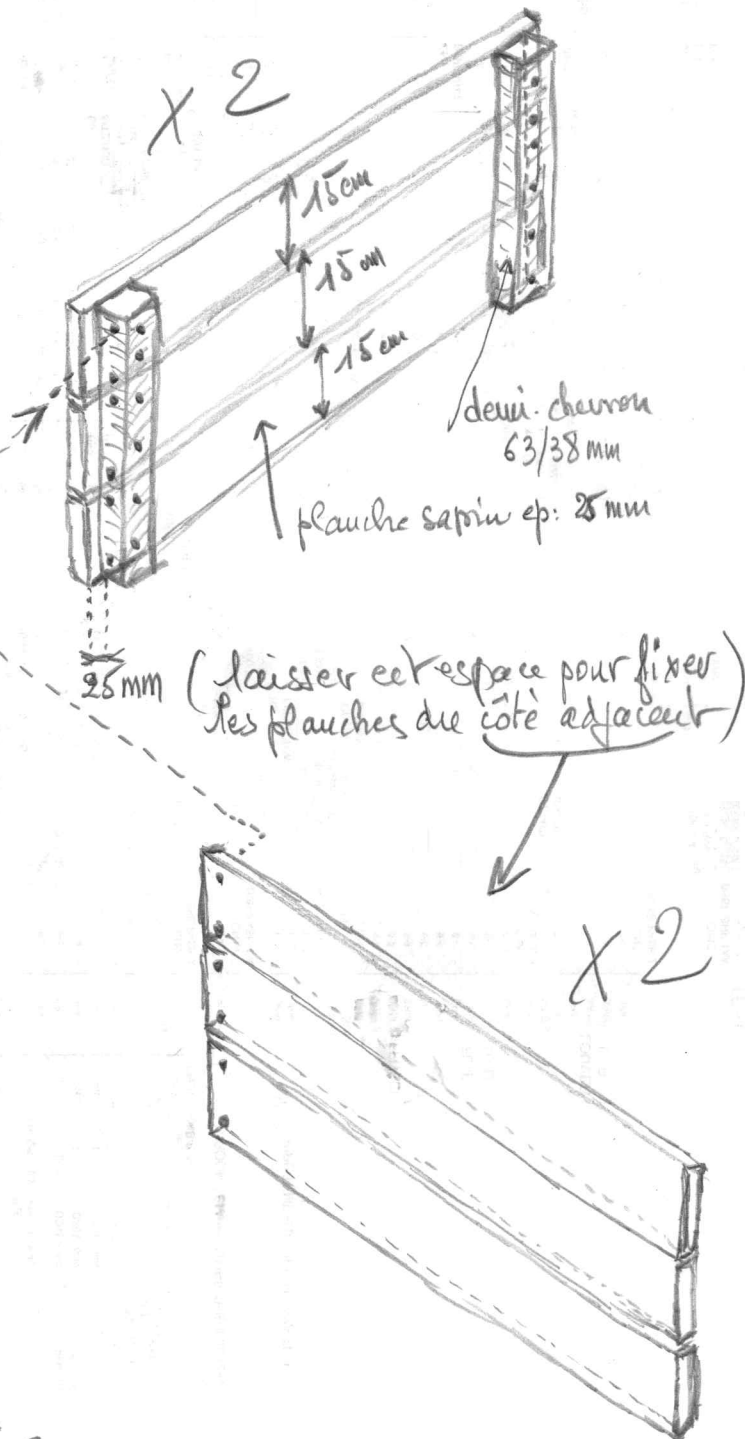 X 2
15 cm
15 cm
15 cm
demi-chevron
63/38 mm
planche sapin ep: 25 mm
25 mm (laisser cet espace pour fixer
les planches du côté adjacent)
X 2